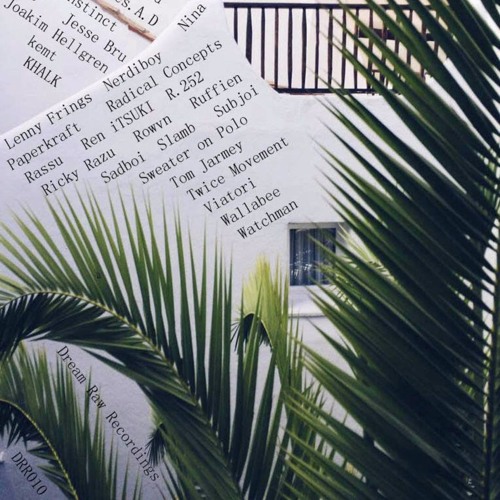 s.A.D
stinct
Jesse Bru
Joakim Hellgren
kemt
KHALK
Lenny Frings Nerdiboy Nina
Paperkraft Radical Concepts
Rassu Ren iTSUKI R.252
Ricky Razu Rowvn Ruffien
Sadboi Slamb Subjoi
Sweater on Polo
Tom Jarmey
Twice Movement
Viatori
Wallabee
Watchman
Dream Raw Recordings
DRR010